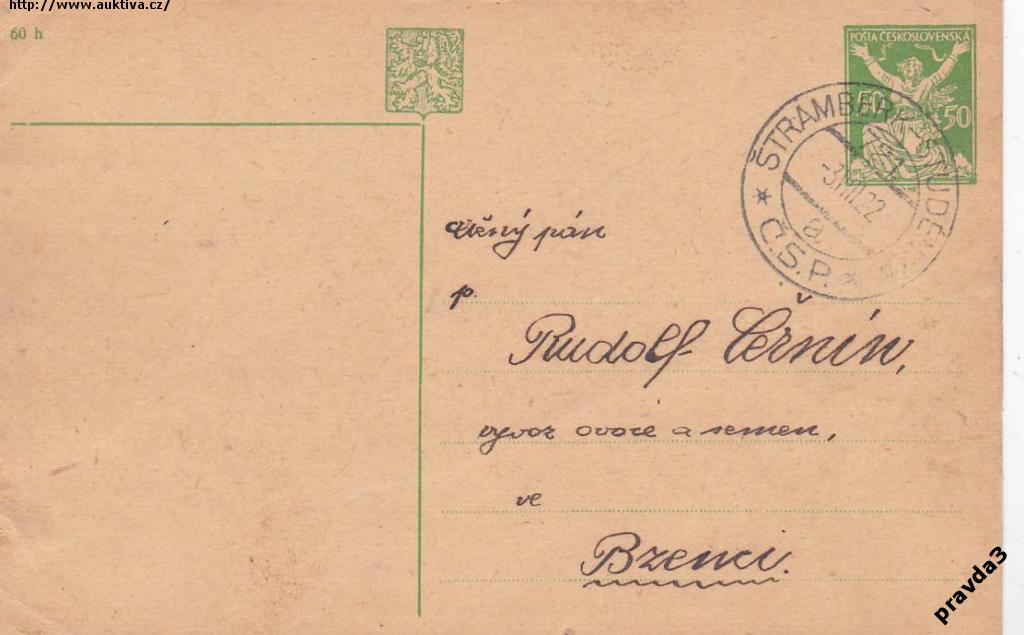 http://www.auktiva.cz/
60 h
POŠTA ČESKOSLOVENSKÁ
50 50
ŠTRAMBERK
a
* Č.S.P. *
pán
p.
Rudolf Černín,
vývoz ovoce a semen,
ve
Bzenci.
pravda3